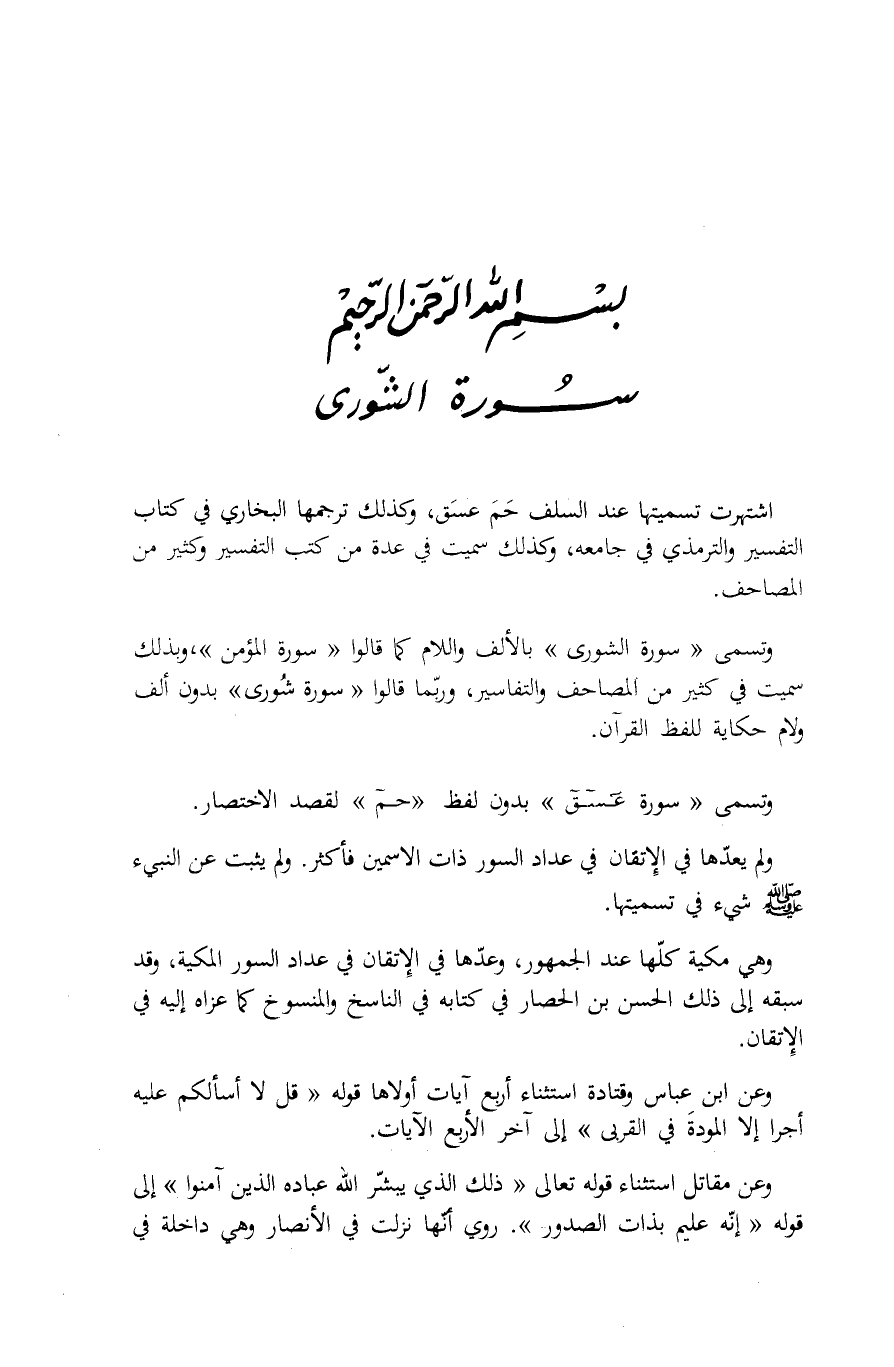 بِسْمِ اللّٰه الرَّحْمَن الرَّحِيْم
سُورة الشّورى
اشتهرت تسميتها عند السلف حَمَ عسَق، وكذلك ترجمها البخاري في كتاب
التفسير والترمذي في جامعه، وكذلك سميت في عدة من كتب التفسير وكثير من
المصاحف.
وتسمى « سورة الشورى » بالألف واللام كما قالوا « سورة المؤمن »،وبذلك
سميت في كثير من المصاحف والتفاسير، وربّما قالوا « سورة شُورى» بدون ألف
ولام حكاية للفظ القرآن.
وتسمى « سورة عَسَق » بدون لفظ «حـمَ » لقصد الاختصار.
ولم يعدّها في الإتقان في عداد السور ذات الاسمين فأكثر. ولم يثبت عن النبيء
ﷺ شيء في تسميتها.
وهي مكية كلّها عند الجمهور، وعدّها في الإتقان في عداد السور المكية، وقد
سبقه إلى ذلك الحسن بن الحصار في كتابه في الناسخ والمنسوخ كما عزاه إليه في
الإتقان.
وعن ابن عباس وقتادة استثناء أربع آيات أولاها قوله « قل لا أسألكم عليه
أجرا إلا المودةَ في القربى » إلى آخر الأربع الآيات.
وعن مقاتل استثناء قوله تعالى « ذلك الذي يبشّر الله عباده الذين آمنوا » إلى
قوله « إنّه عليم بذات الصدور ». روي أنّها نزلت في الأنصار وهي داخلة في